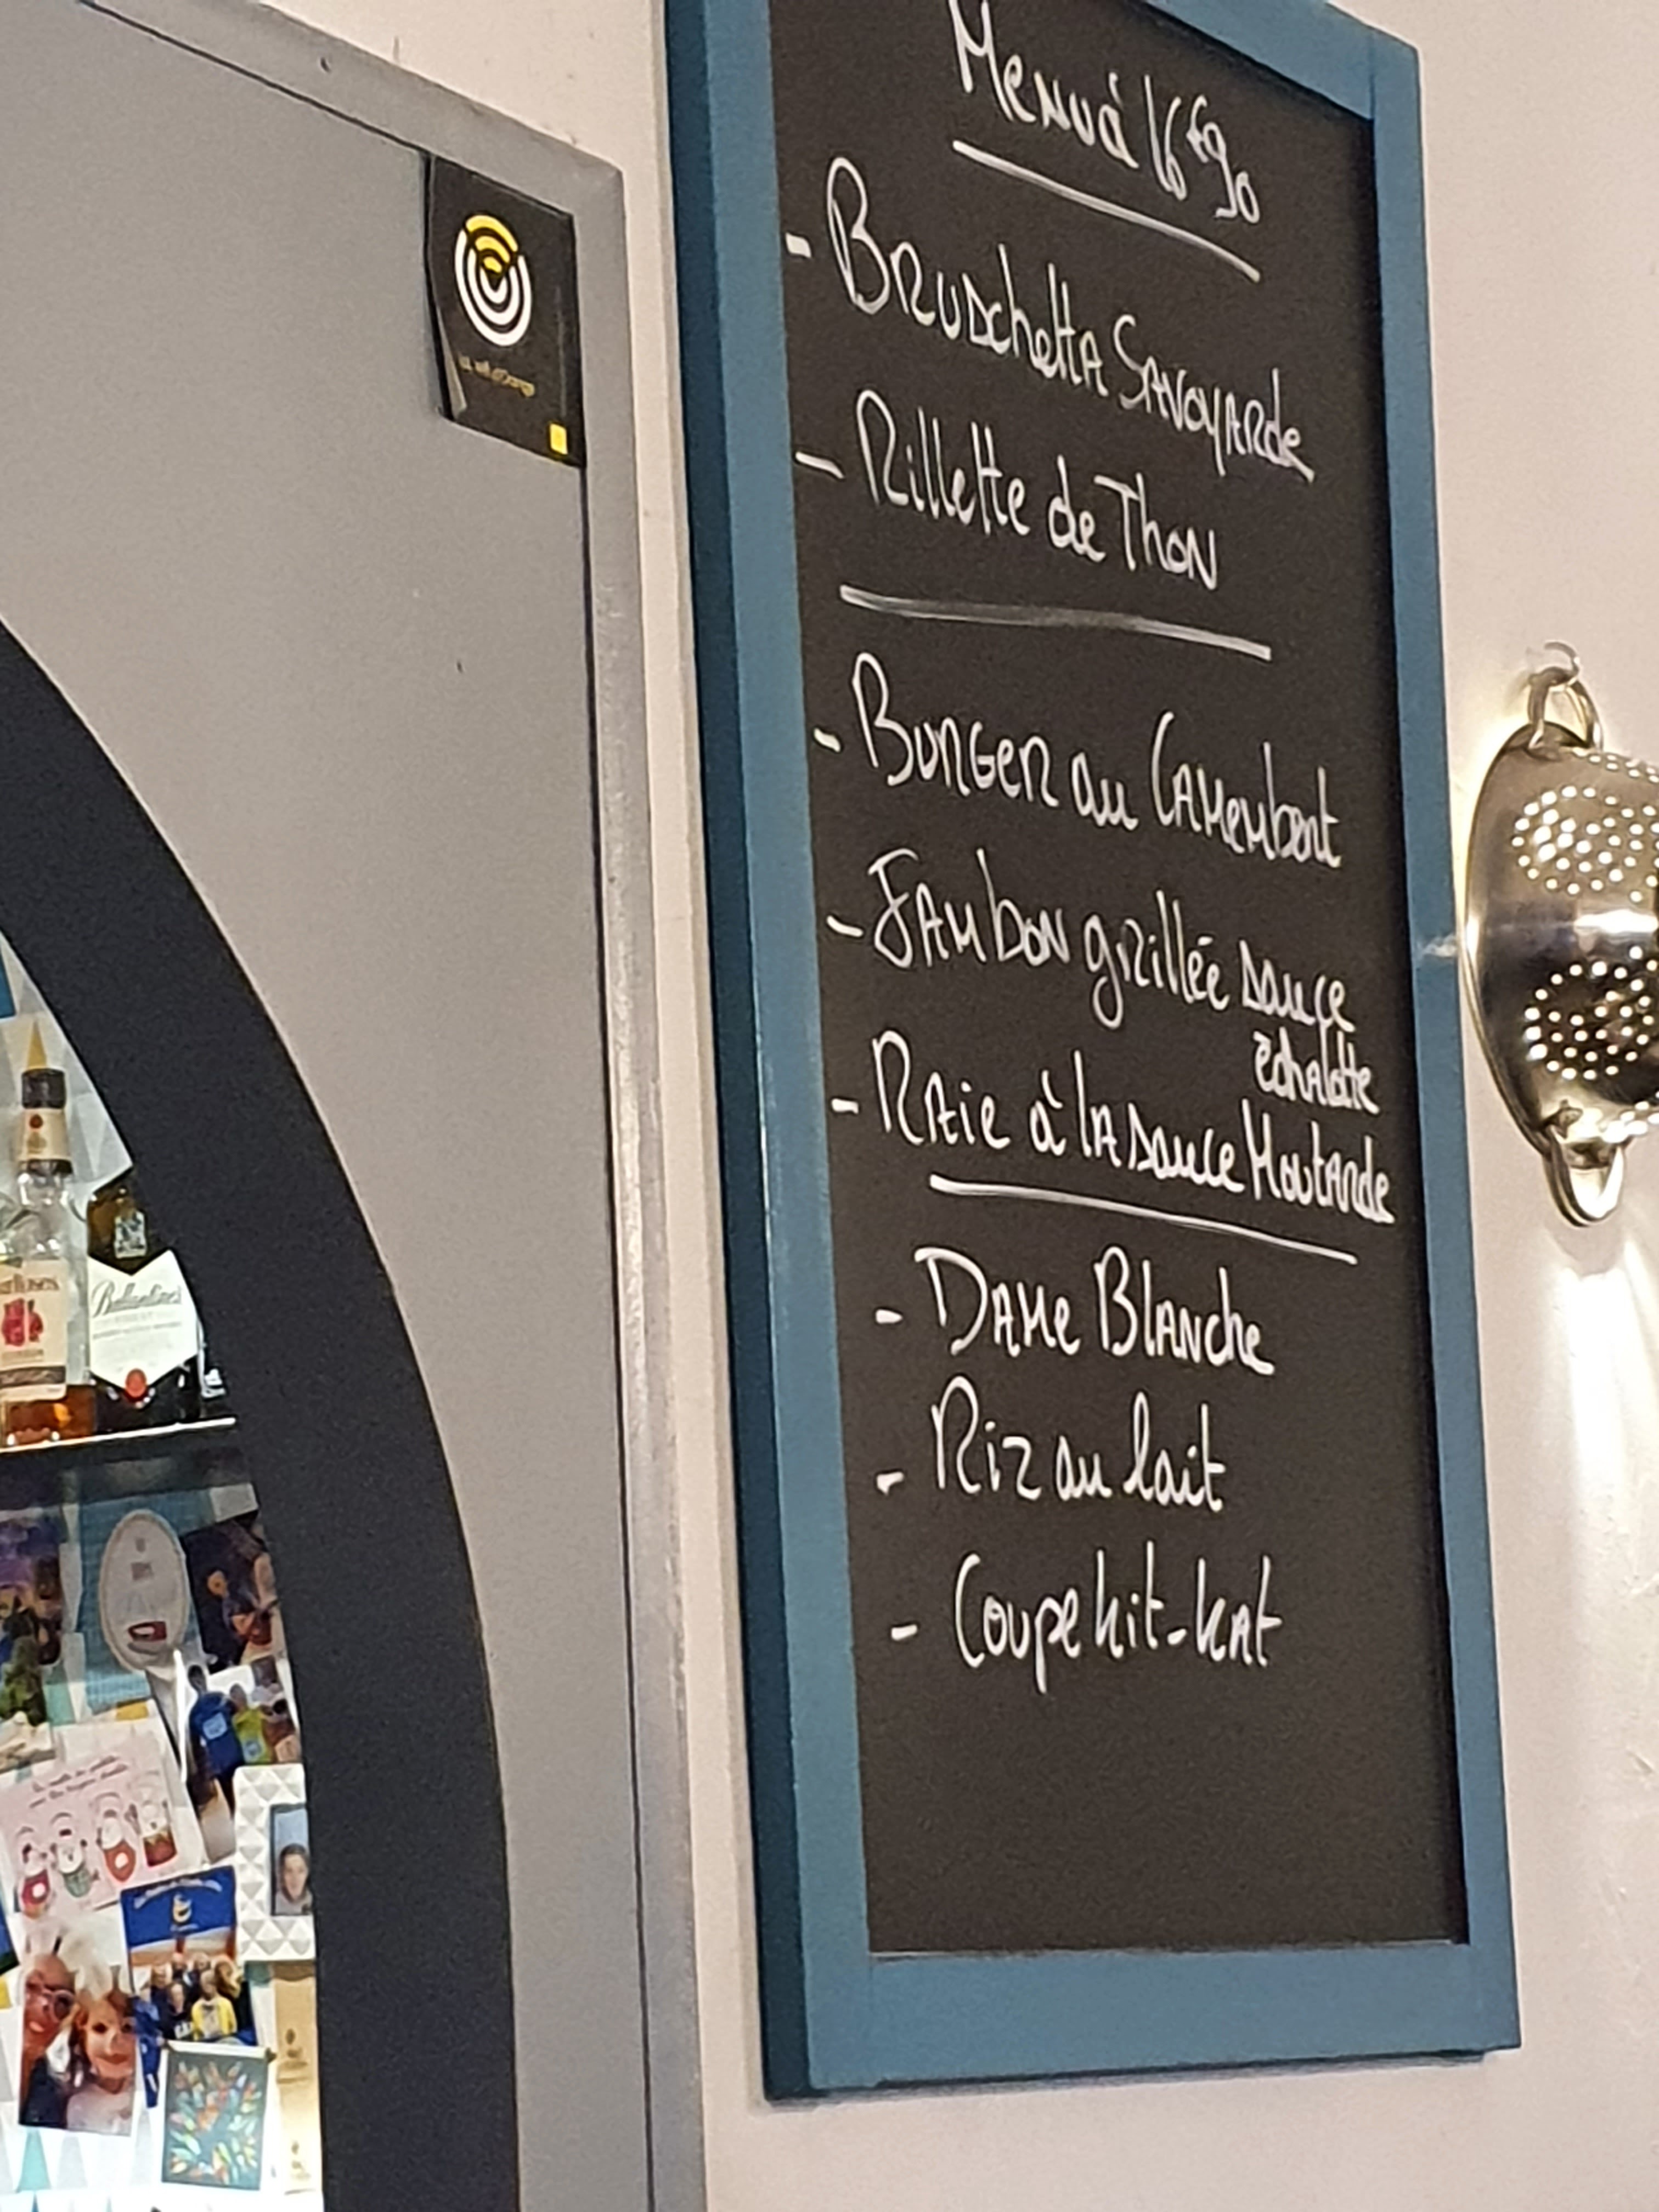 Menu à 16€90
- Bruschetta Savoyarde
- Rillette de Thon
- Burger au Camembert
- Jambon grillée sauce
échalotte
- Raie à la sauce Moutarde
- Dame Blanche
- Riz au lait
- Coupe kit-kat
Ballantine's